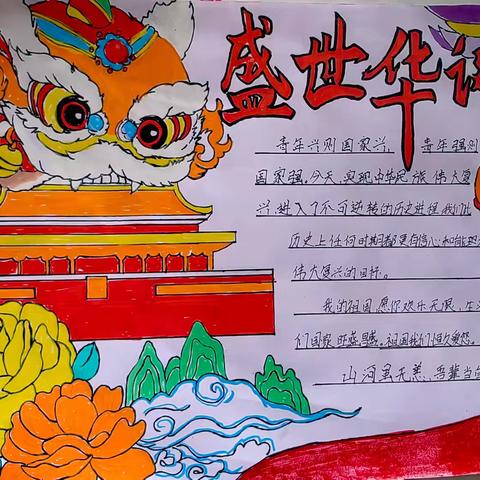 盛世华
青年兴则国家兴,青年强则
国家强。今天,实现中华民族伟大复
兴,进入了不可逆转的历史进程,我们比
历史上任何时期都更有信心和能
伟大复兴的目标。
我的祖国,愿你欢乐无限,
们国家旺盛。祖国我们恒久
山河里无恙,吾辈当